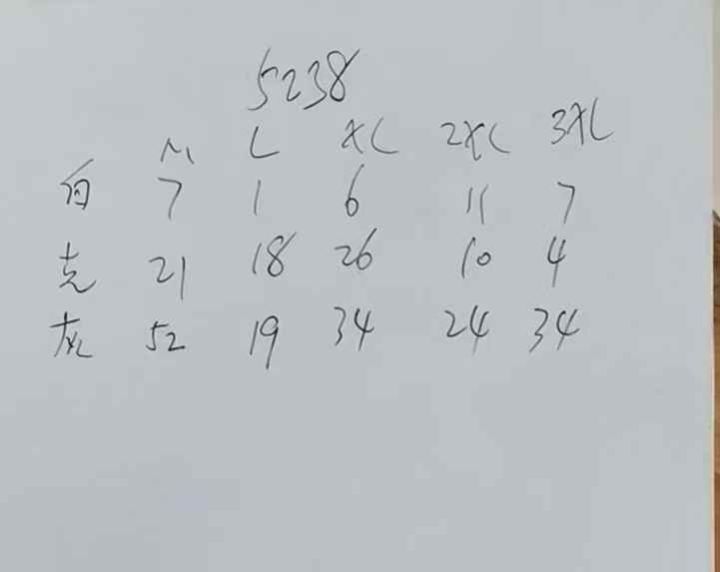 5238
M L XL 2XL 3XL
白 7 1 6 11 7
克 21 18 26 10 4
灰 52 19 34 24 34